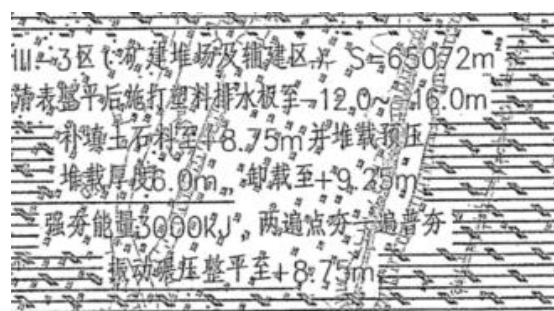 Ⅲ-3区(矿建堆场及辅建区) S=65072m²
清表整平后施打塑料排水板至-12.0~-16.0m
补填土石料至+8.75m并堆载预压
堆载厚度6.0m,卸载至+9.25m
强夯能量3000KJ,两遍点夯一遍普夯
振动碾压整平至+8.75m